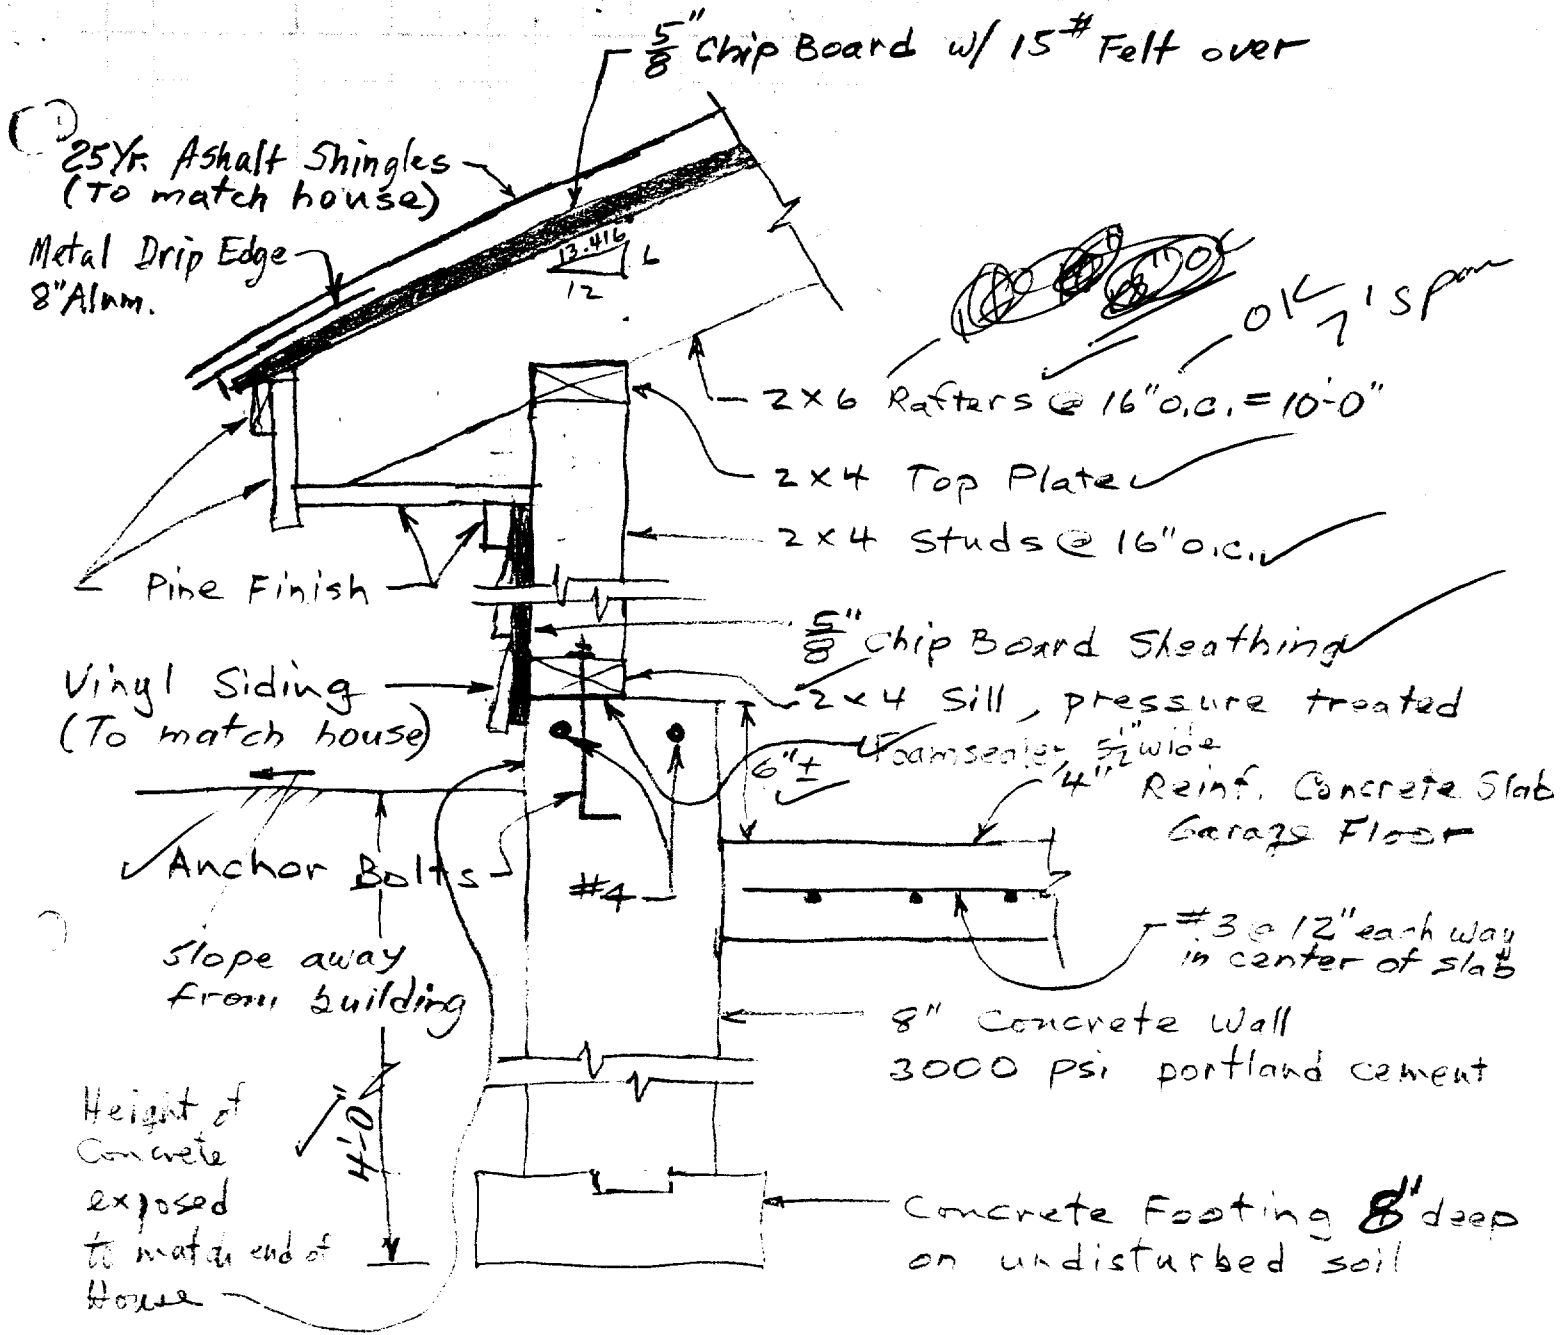 5/8" Chip Board w/ 15# Felt over
25Yr. Ashalt Shingles
(To match house)
Metal Drip Edge
8" Alum.
13.416
6
12
OK 7' span
2x6 Rafters @ 16" o.c. = 10'-0"
2x4 Top Plate
2x4 Studs @ 16" o.c.
Pine Finish
5/8" Chip Board Sheathing
Vinyl Siding
(To match house)
2x4 Sill, pressure treated
Foamsealer, 5½" wide
6"±
4" Reinf. Concrete Slab
Garage Floor
Anchor Bolts
#4
#3 @ 12" each way
in center of slab
Slope away
from building
8" Concrete Wall
3000 psi portland cement
4'-0"
Height of
Concrete
exposed
to match end of
House
Concrete Footing 8" deep
on undisturbed soil